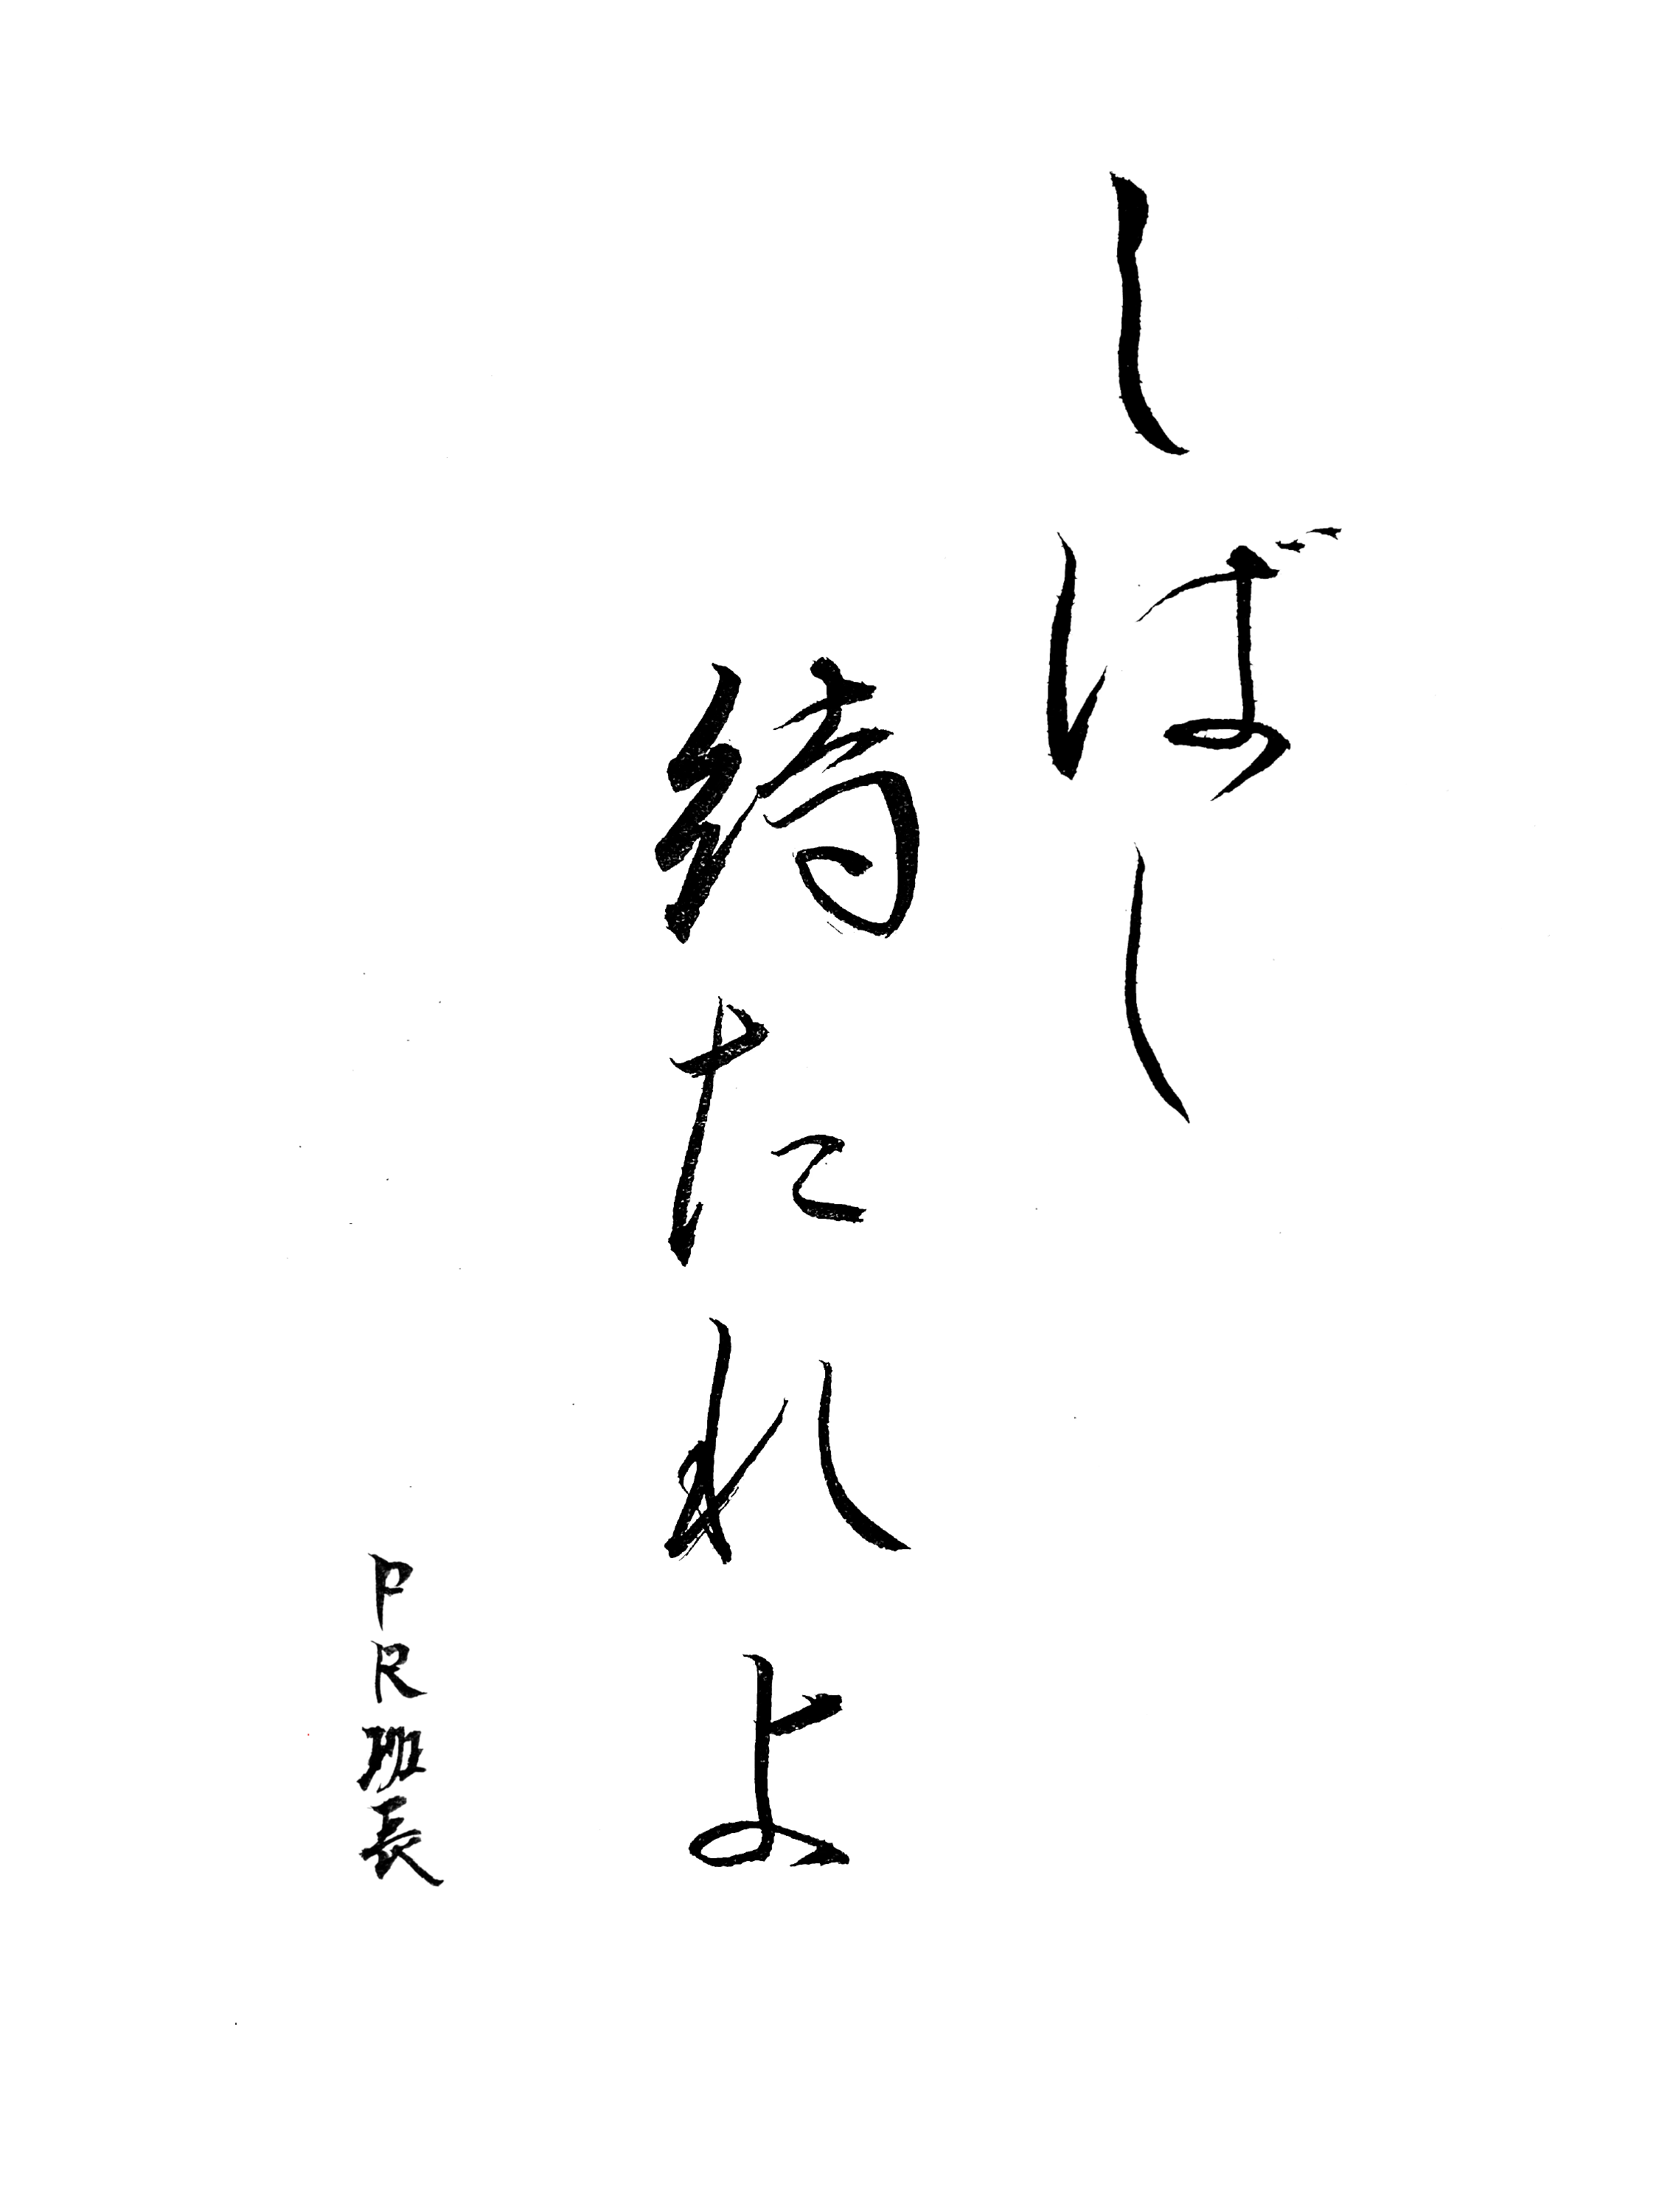 しばし
待たれよ
PR班長